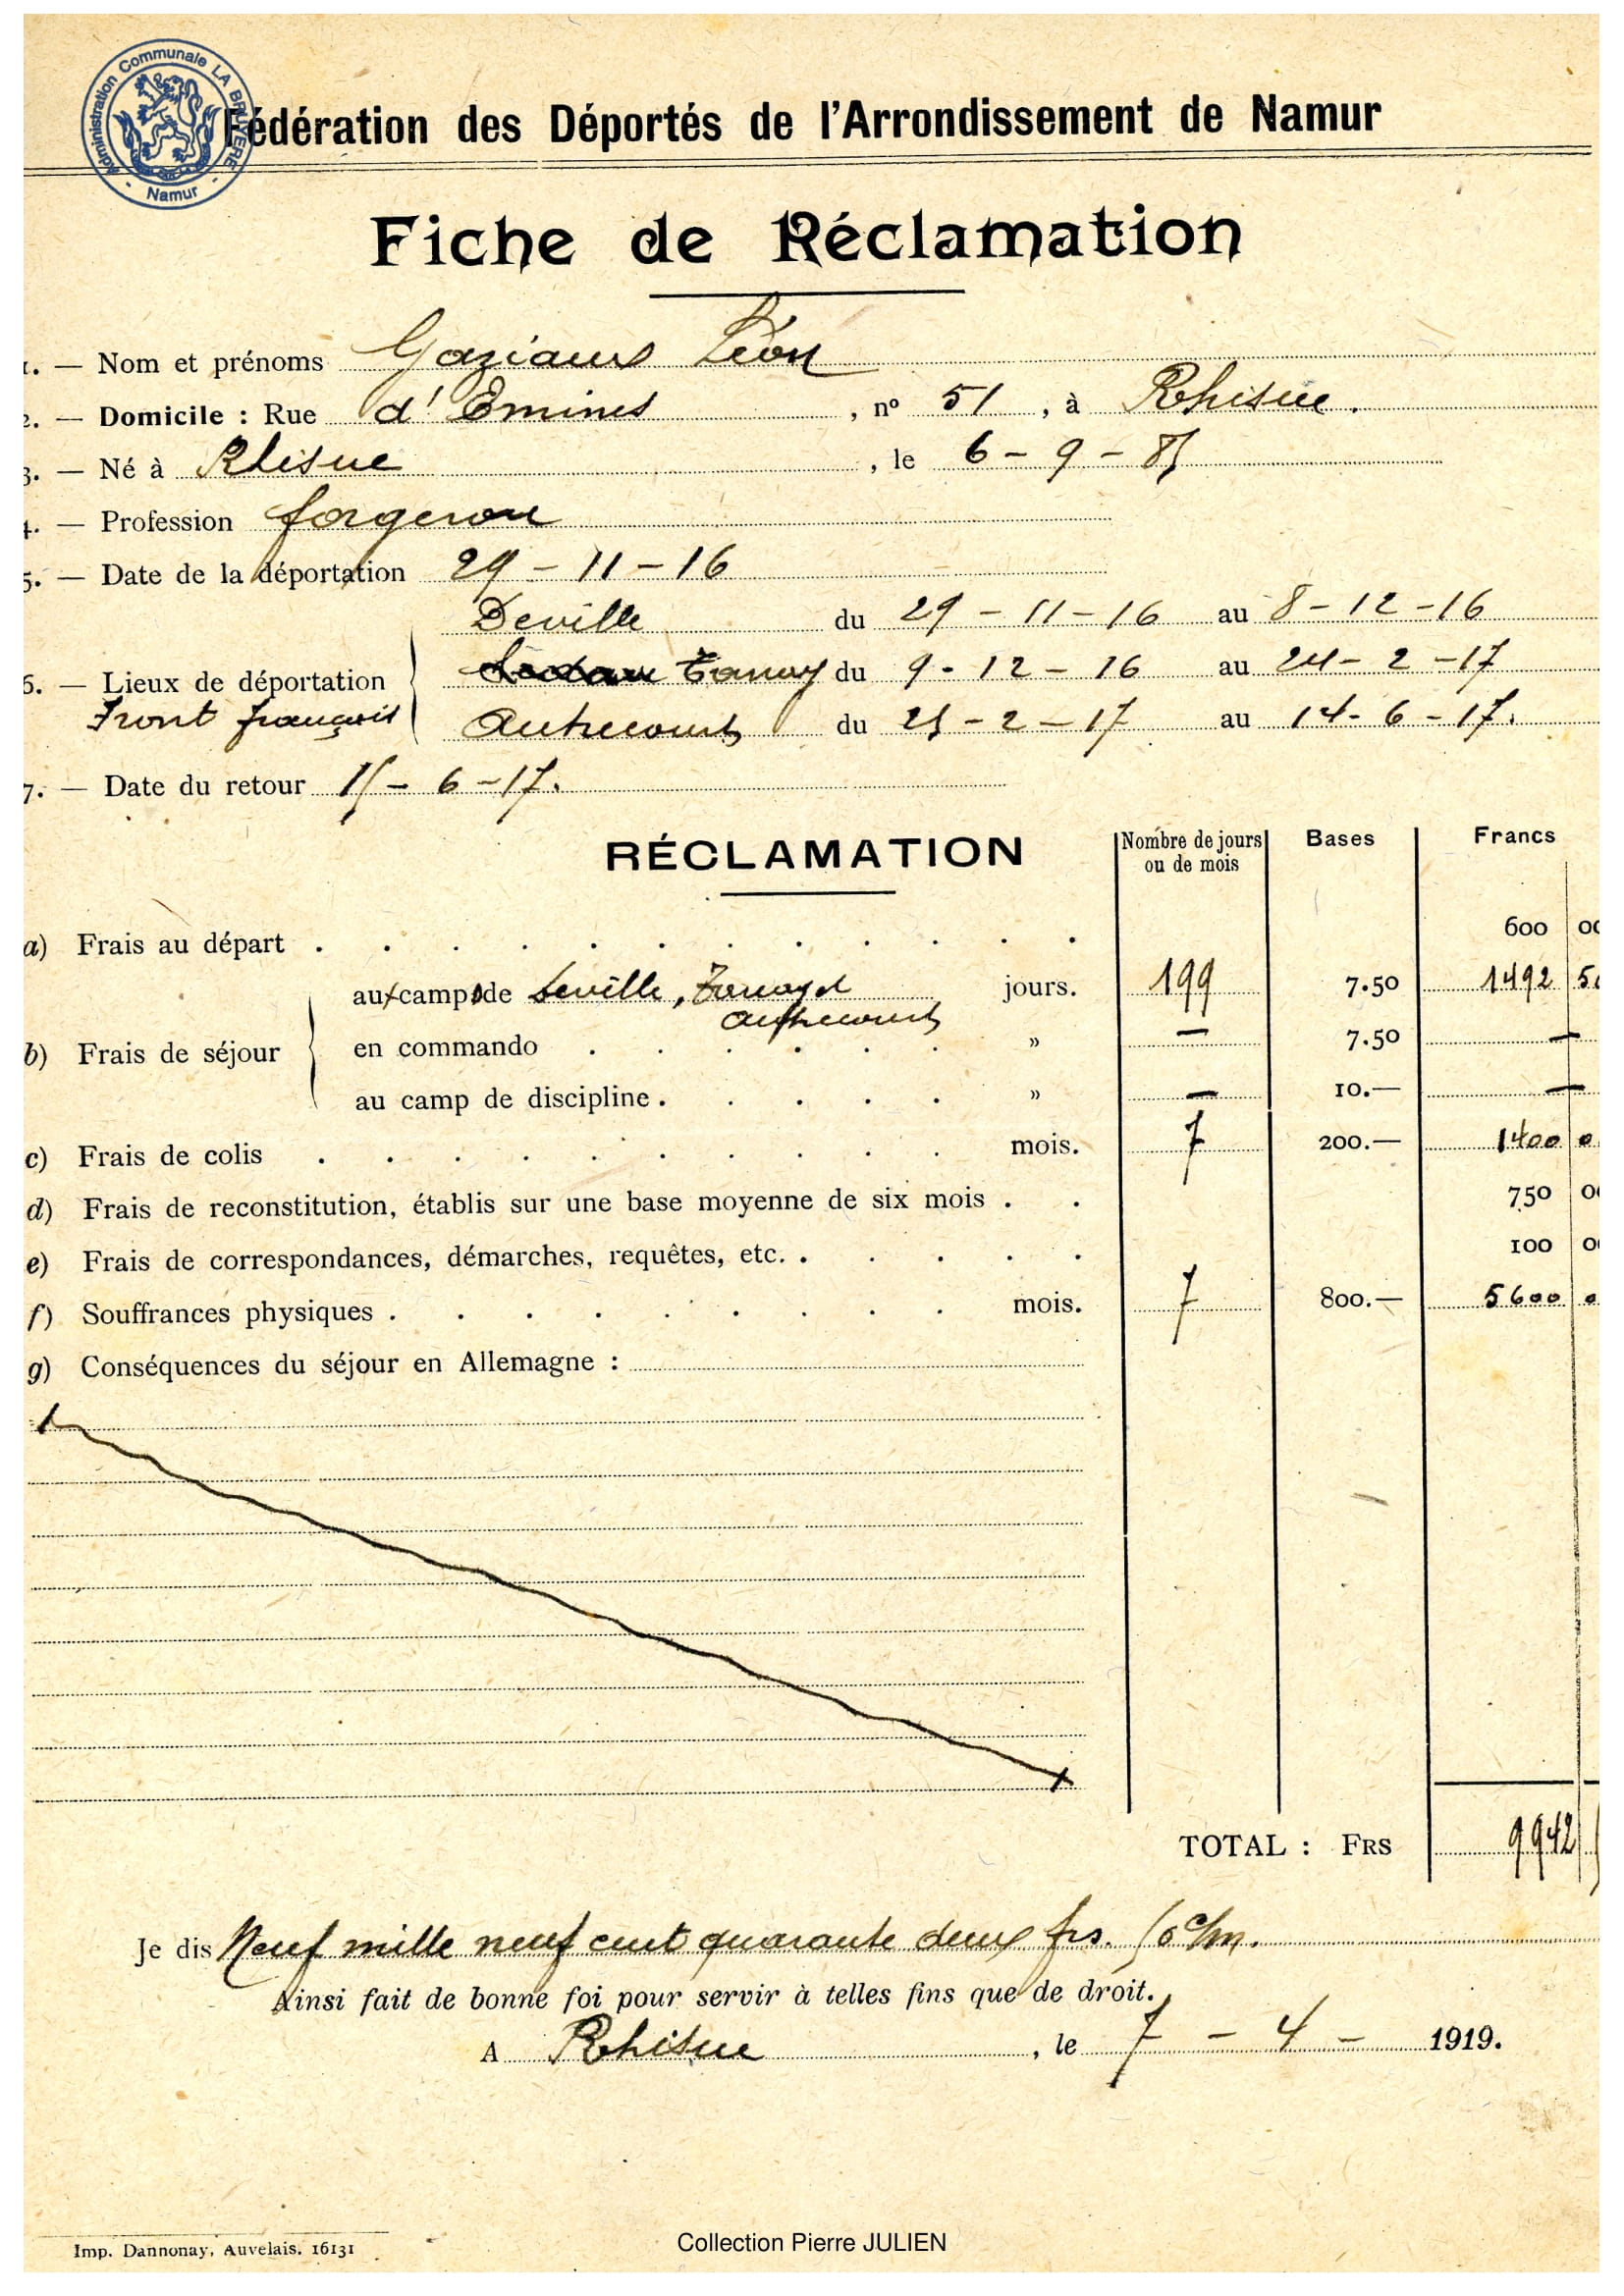 Administration Communale LA BRUYERE
- Namur -
Fédération des Déportés de l'Arrondissement de Namur
Fiche de Réclamation
1. — Nom et prénoms Gaziaux Léon
2. — Domicile : Rue d'Emines, n° 51, à Rhisne.
3. — Né à Rhisne, le 6 - 9 - 85
4. — Profession forgeron
5. — Date de la déportation 29 - 11 - 16
Deville du 29 - 11 - 16 au 8 - 12 - 16
6. — Lieux de déportation du 9 - 12 - 16 au 24 - 2 - 17
Front français Autrecourt du 25 - 2 - 17 au 14 - 6 - 17.
7. — Date du retour 15 - 6 - 17.
RÉCLAMATION Nombre de jours ou de mois Bases Francs
a) Frais au départ 600 00
aux camps de Deville, jours. 199 7.50 1492 50
Autrecourt
b) Frais de séjour en commando » — 7.50 —
au camp de discipline » — 10.— —
c) Frais de colis mois. 7 200.— 1400 0
d) Frais de reconstitution, établis sur une base moyenne de six mois 750 00
e) Frais de correspondances, démarches, requêtes, etc. 100 0
f) Souffrances physiques mois. 7 800.— 5600 0
g) Conséquences du séjour en Allemagne :
TOTAL : FRS 9942
Je dis Neuf mille neuf cent quarante deux frs. 50 c/m.
Ainsi fait de bonne foi pour servir à telles fins que de droit.
A Rhisne, le 7 - 4 - 1919.
Imp. Dannonay, Auvelais. 16131
Collection Pierre JULIEN